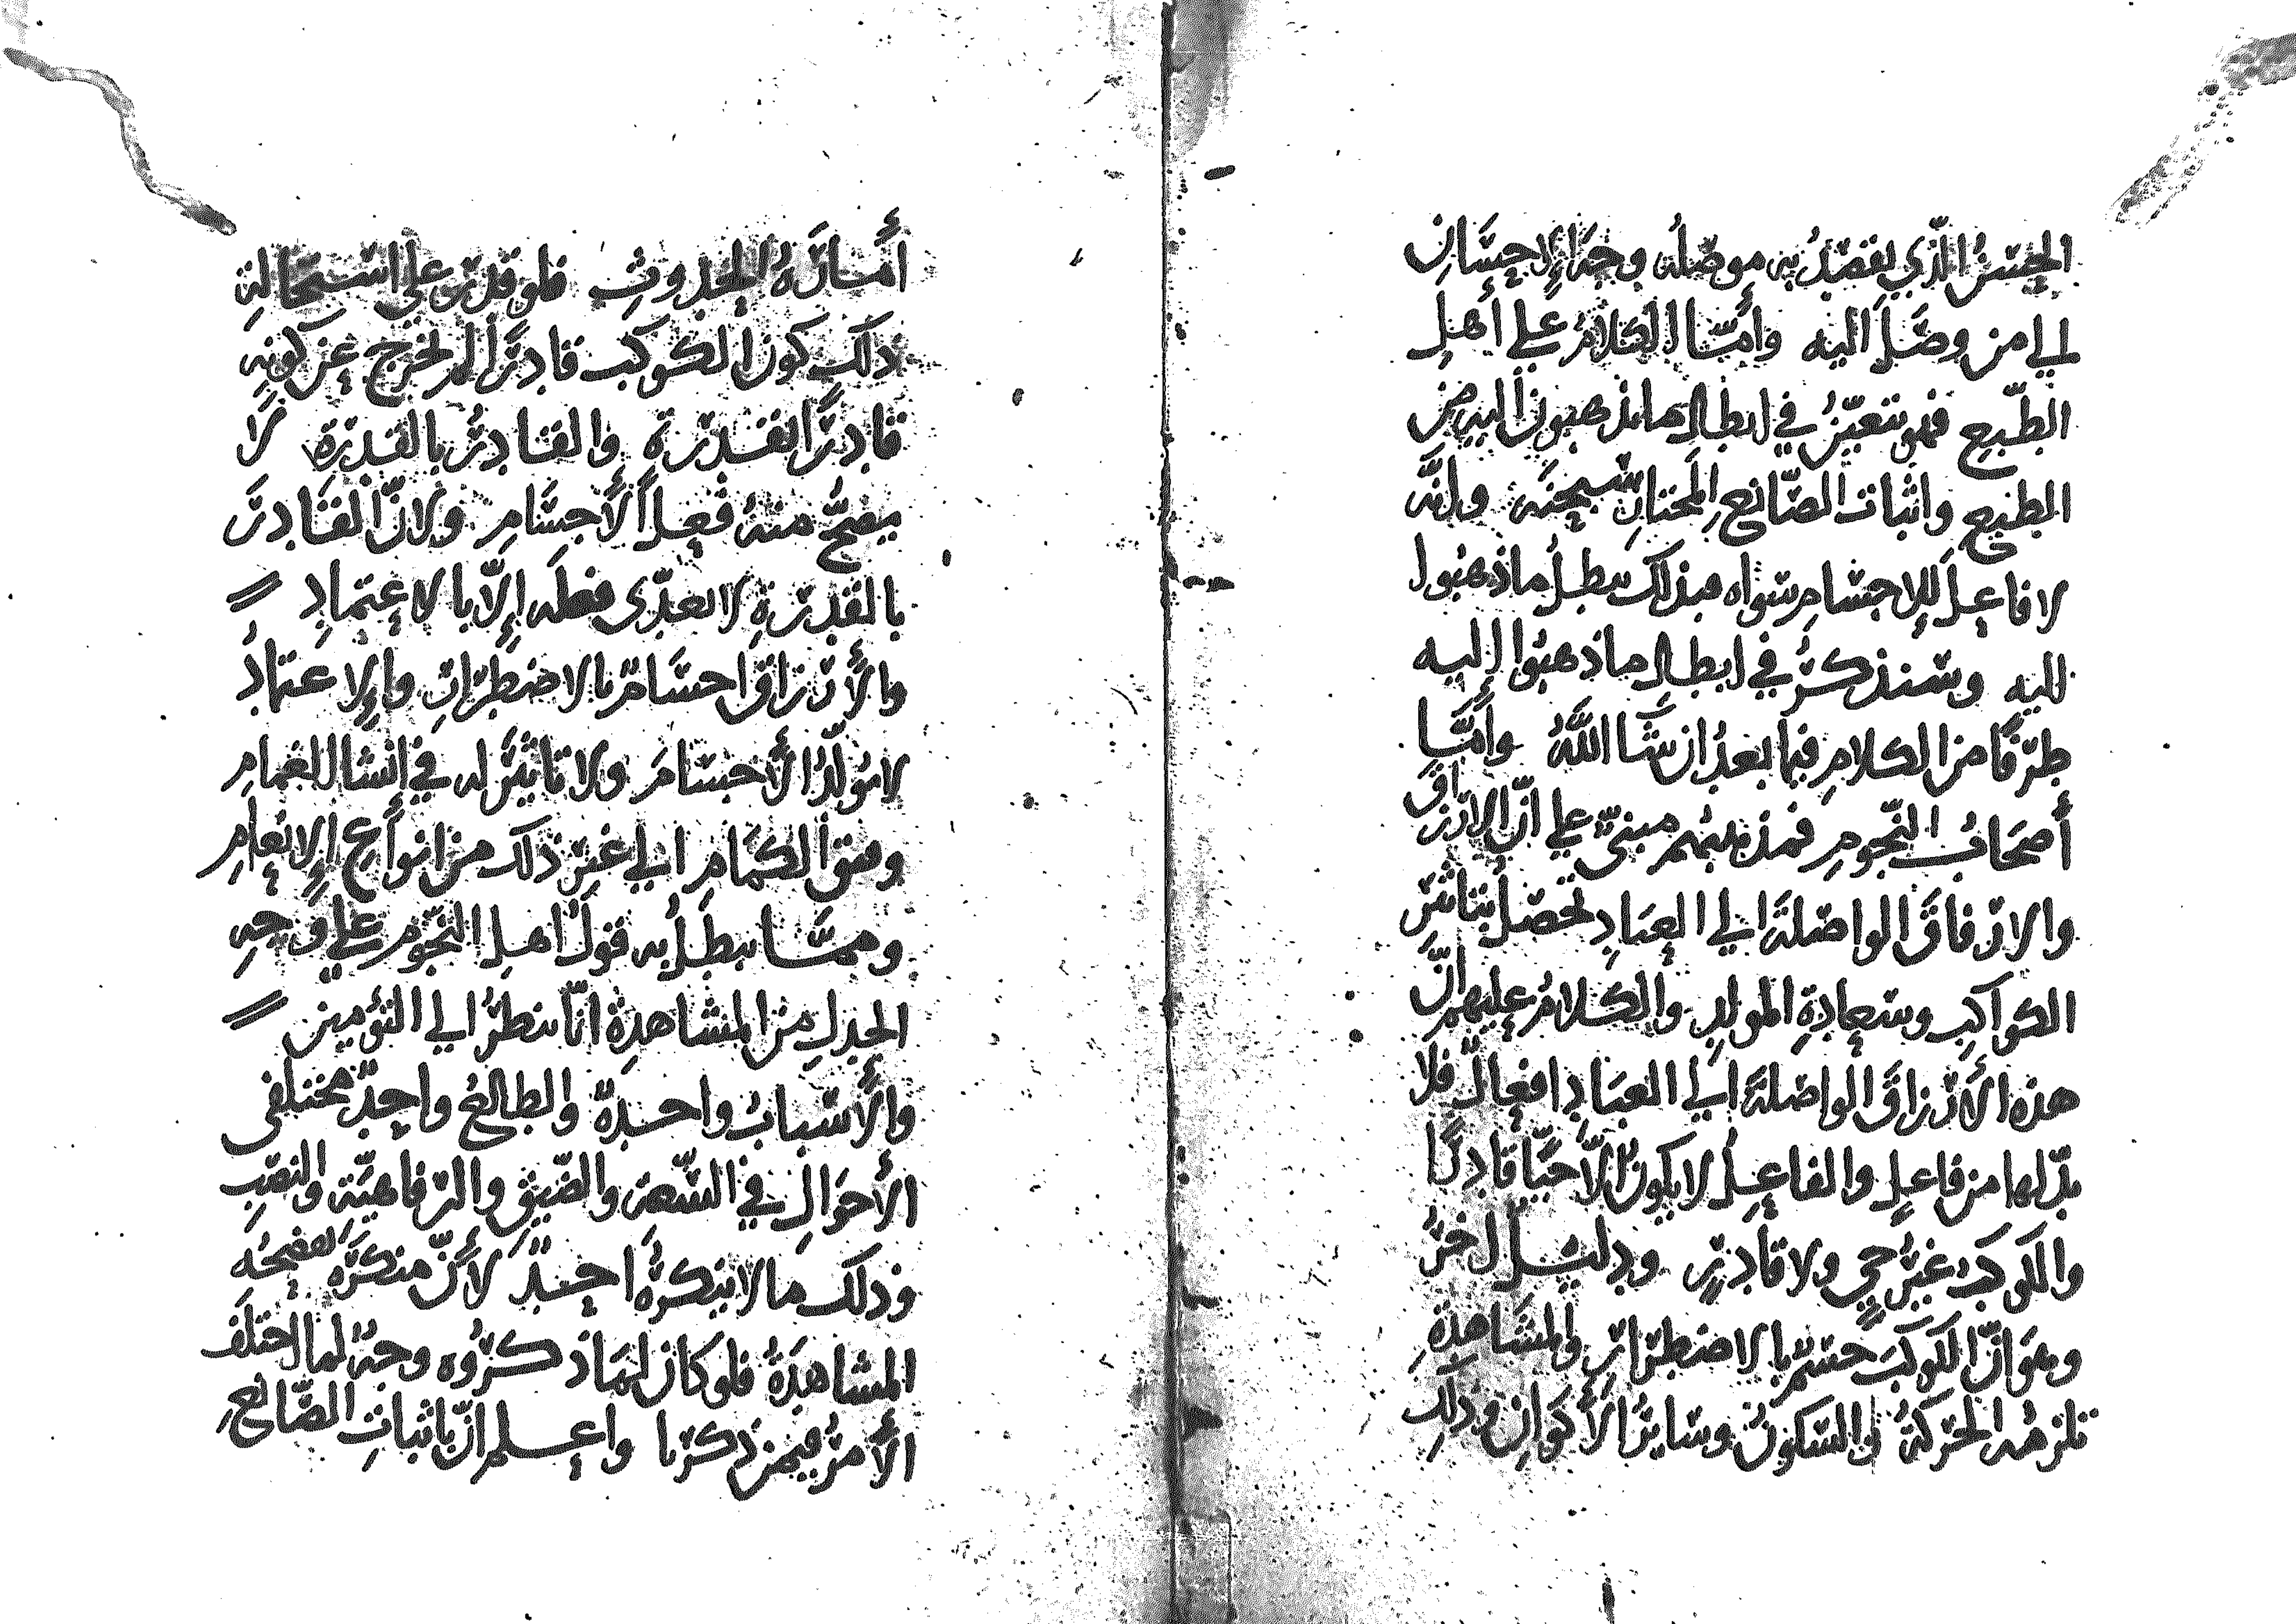 الحسن الذي يقصد به موصله وجه الإحسان
إلى من وصل اليه وأما الكلام على أهل
الطبع فهو يتعين في ابطال ما يذهبون اليه من
الطبع واثبات الصانع المختار سبحنه وانه
لا فاعل للاجسام سواه فبذلك يبطل ما ذهبوا
إليه وسنذكر في ابطال ما ذهبوا اليه
طرفا من الكلام فيما بعد ان شا الله وأما
أصحاب النجوم فمذهبهم مبني على ان الارزاق
والارفاق الواصلة الى العباد تحصل بتاثير
الكواكب وسعادة المولد والكلام عليهم ان
هذه الأرزاق الواصلة الى العباد افعال فلا
بد لها من فاعل والفاعل لا يكون الا حيا قادرا
والكوكب غير حي ولا قادر ودليل اخر
وهو ان الكوكب جسم بالاضطرار والمشاهدة
تلزمه الحركة والسكون وساير الأكوان وذلك
أمارة الحدوث فلو قدر على استحالة
ذلك كون الكوكب قادرا لم يخرج عن كونه
قادرا بقدرة والقادر بالقدرة لا
يصح منه فعل الأجسام ولان القادر
بالقدرة لا يعدى فعله إلا بالاعتماد
والأرزاق اجسام بالاضطرار والاعتماد
لا يولد الأجسام ولا تاثير له في انشا الغمام
وفتق الكمام الى غير ذلك من انواع الإنعام
ومما يبطل به قول اهل النجوم على وجه
الجدل من المشاهدة انا ننظر الى التؤمين
والأسباب واحدة والطالع واحد مختلفي
الأحوال في السعة والضيق والرفاهية والنصب
وذلك ما لا ينكره احد لأن منكره تفضحه
المشاهدة فلو كان لما ذكروه وجه لما اختلف
الأمر فيمن ذكرنا واعلم ان باثبات الصانع